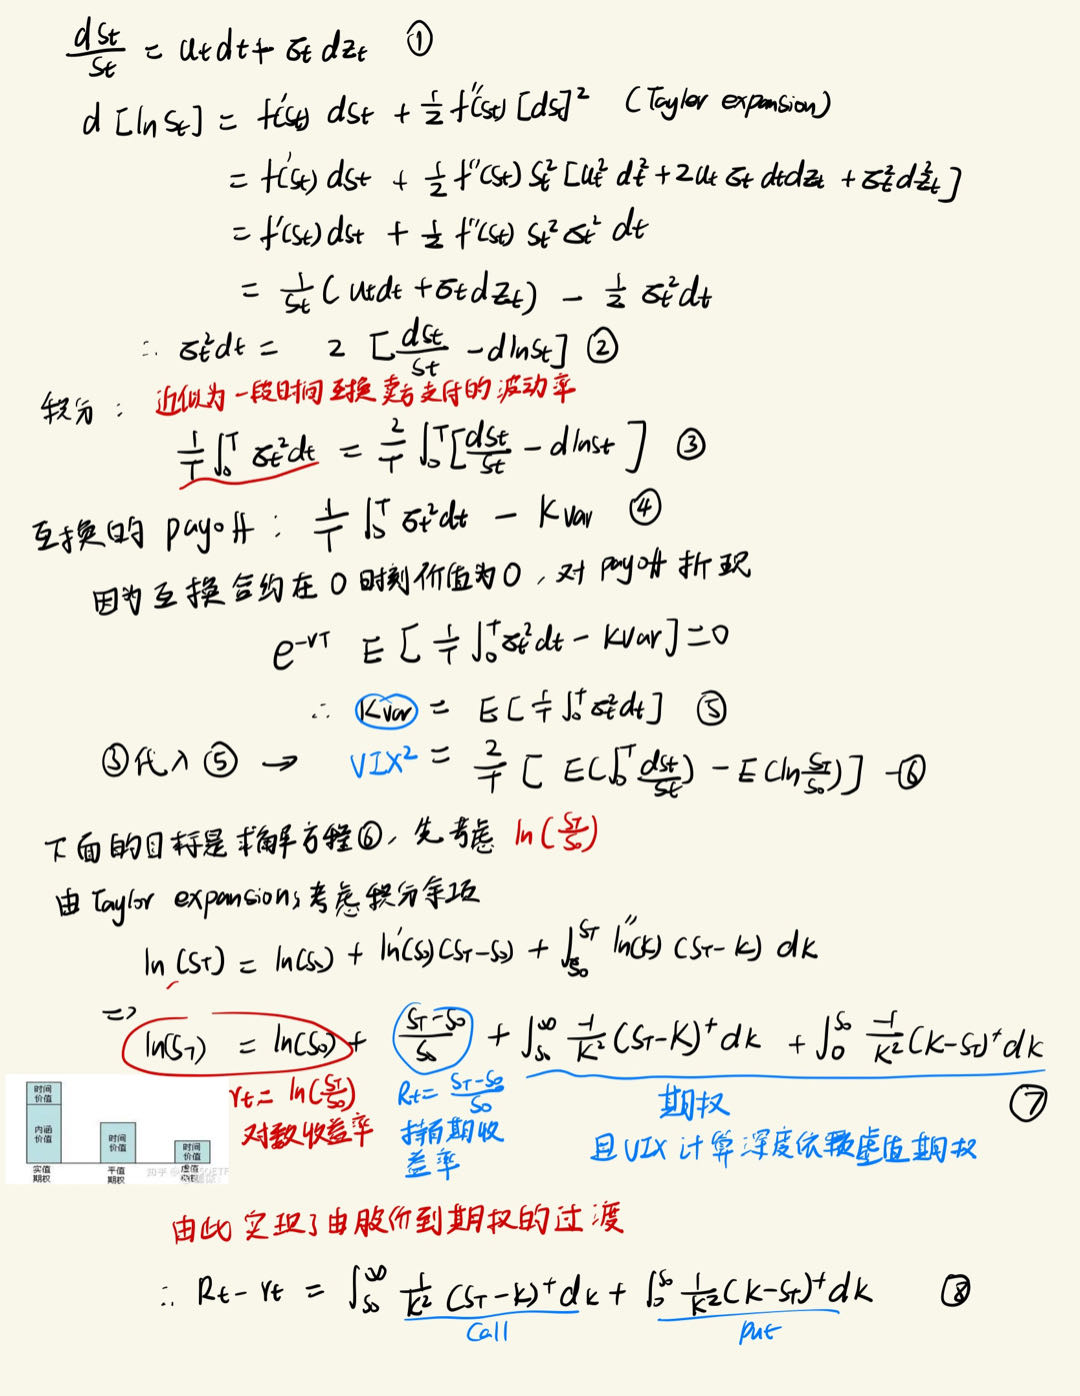 dSt/St = utdt + σt dzt ①
d [ln St] = f'(St) dSt + 1/2 f''(St) [dSt]² (Taylor expansion)
= f'(St) dSt + 1/2 f''(St) St² [ut² dt² + 2ut σt dtdzt + σt² dzt²]
= f'(St) dSt + 1/2 f''(St) St² σt² dt
= 1/St (utdt + σtdzt) - 1/2 σt²dt
∴ σt²dt = 2 [dSt/St - dlnSt] ②
积分: 近似为一段时间互换卖方支付的波动率
1/T ∫₀ᵀ σt²dt = 2/T ∫₀ᵀ [dSt/St - dlnSt] ③
互换的 payoff: 1/T ∫₀ᵀ σt²dt - Kvar ④
因为互换合约在0时刻价值为0, 对 payoff 折现
e^-rT E [1/T ∫₀ᵀ σt²dt - Kvar] = 0
∴ Kvar = E [1/T ∫₀ᵀ σt²dt] ⑤
③代入⑤ → VIX² = 2/T [E(∫₀ᵀ dSt/St) - E(ln ST/S0)] -⑥
下面的目标是求解方程⑥, 先考虑 ln(ST/S0)
由 Taylor expansion, 考虑积分余项
ln(ST) = ln(S0) + ln'(S0)(ST-S0) + ∫_S0^ST ln''(K) (ST-K) dK
=> ln(ST) = ln(S0) + (ST-S0)/S0 + ∫_S0^∞ -1/K² (ST-K)⁺dK + ∫_0^S0 -1/K² (K-ST)⁺dK
rt = ln(ST/S0) Rt = (ST-S0)/S0 期权 ⑦
对数收益率 持有期收益率 且VIX计算深度依赖虚值期权
时间价值
内涵价值
时间价值
时间价值
实值期权 平值期权 虚值
知乎
由此实现了由股价到期权的过渡
∴ Rt - rt = ∫_S0^∞ 1/K² (ST-K)⁺dK + ∫_0^S0 1/K² (K-ST)⁺dK ⑧
Call Put